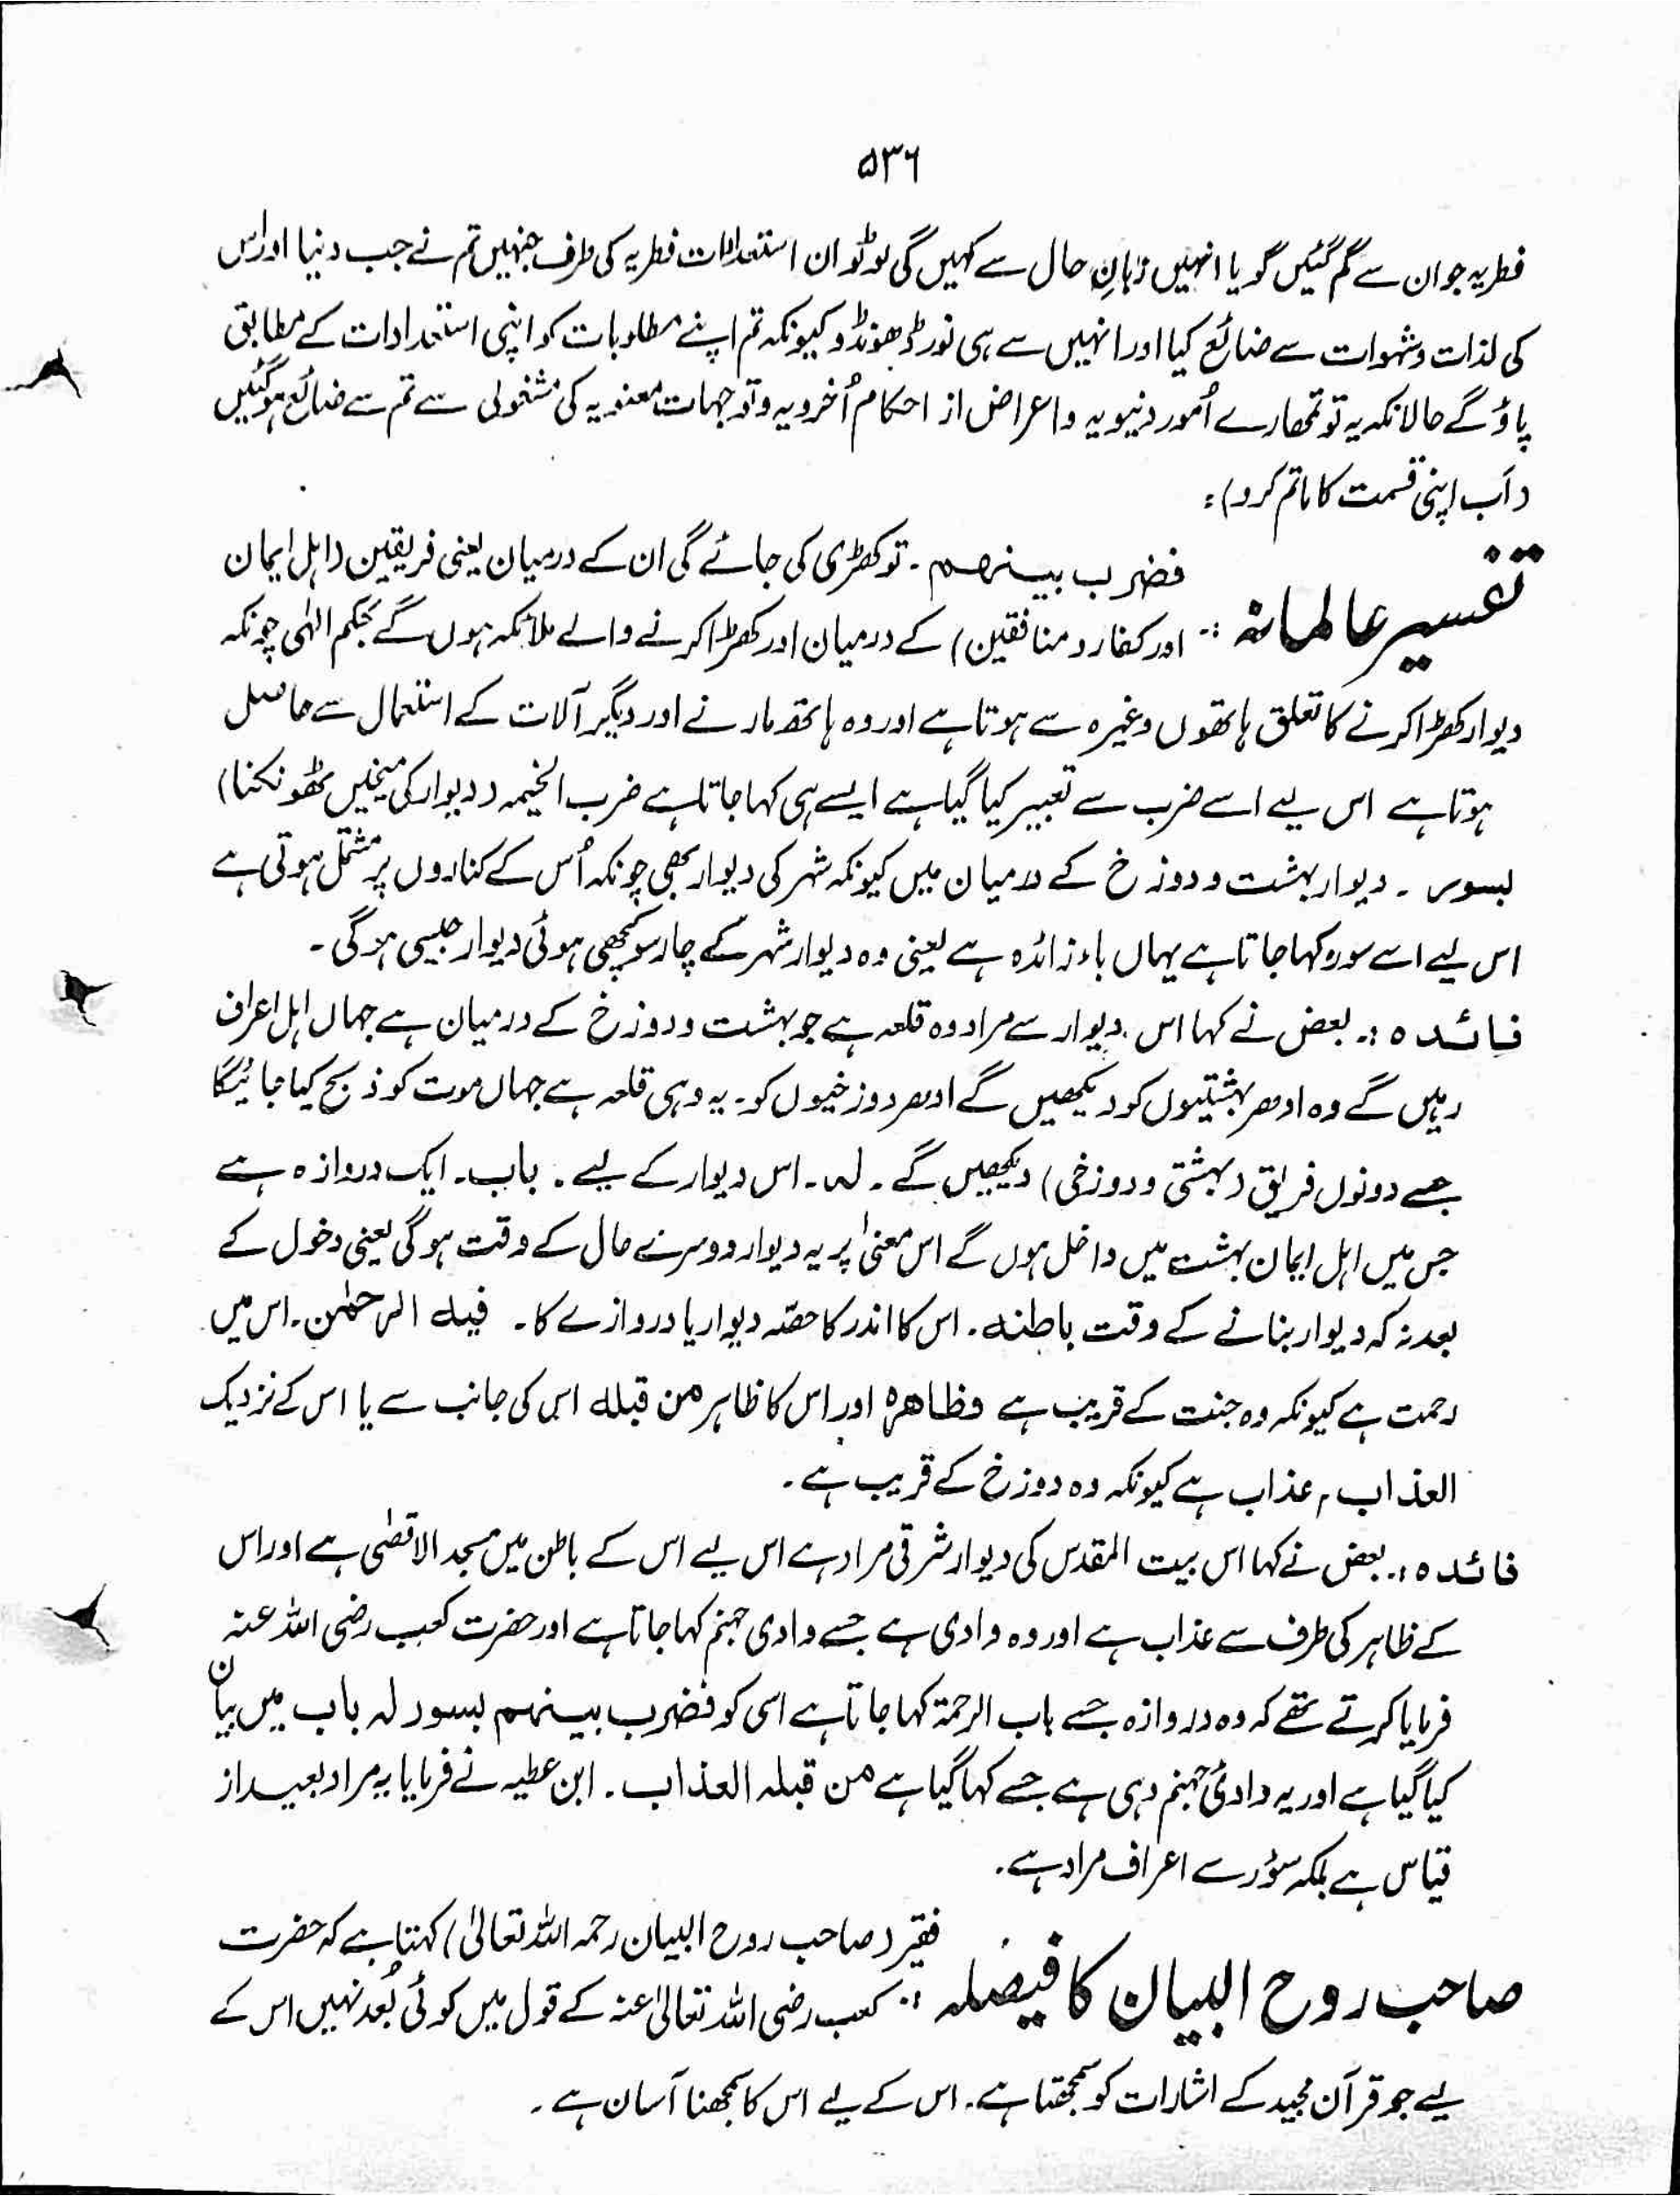 ۵۳۶
فطریہ جو ان سے گم گئیں گویا انہیں زبانِ حال سے کہیں گی لوٹو ان استعدادات فطریہ کی طرف جنہیں تم نے جب دنیا اور اس
کی لذات و شہوات سے ضائع کیا اور انہیں سے ہی نور ڈھونڈو کیونکہ تم اپنے مطلوبات کو اپنی استعدادات کے مطابق
پاؤ گے حالانکہ یہ تو تمھارے اُمور دنیویہ و اعراض از احکام اُخرویہ و توجہات معنویہ کی مشغولی سے تم سے ضائع ہو گئیں
(اَب اپنی قسمت کا ماتم کرو) :
تفسیر عالمانہ :- فضرب بینھم ۔ تو کھڑی کی جائے گی ان کے درمیان یعنی فریقین (اہل ایمان
اور کفار و منافقین) کے درمیان اور کھڑا کرنے والے ملائکہ ہوں گے بحکم الٰہی چونکہ
دیوار کھڑا کرنے کا تعلق ہاتھوں وغیرہ سے ہوتا ہے اور وہ ہاتھ مارنے اور دیگر آلات کے استعمال سے حاصل
ہوتا ہے اس لیے اسے ضرب سے تعبیر کیا گیا ہے ایسے ہی کہا جاتا ہے ضرب الخیمہ (دیوار کی میخیں ٹھونکنا)
بسور ۔ دیوار بہشت و دوزخ کے درمیان میں کیونکہ شہر کی دیوار بھی چونکہ اُس کے کناروں پر مشتمل ہوتی ہے
اس لیے اسے سور کہا جاتا ہے یہاں باء زائدہ ہے یعنی وہ دیوار شہر کے چار سو کھچی ہوئی دیوار جیسی ہو گی ۔
فائدہ :۔ بعض نے کہا اس دیوار سے مراد وہ قلعہ ہے جو بہشت و دوزخ کے درمیان ہے جہاں اہل اعراف
رہیں گے وہ ادھر بہشتیوں کو دیکھیں گے ادھر دوزخیوں کو۔ یہ وہی قلعہ ہے جہاں موت کو ذبح کیا جائیگا
جسے دونوں فریق (بہشتی و دوزخی) دیکھیں گے ۔ لہ ۔ اس دیوار کے لیے ۔ باب ۔ ایک دروازہ ہے
جس میں اہل ایمان بہشت میں داخل ہوں گے اس معنیٰ پر یہ دیوار دوسرے حال کے وقت ہو گی یعنی دخول کے
بعد نہ کہ دیوار بنانے کے وقت باطنہ ۔ اس کا اندر کا حصّہ دیوار یا دروازے کا ۔ فیہ الرحمٰن ۔ اس میں
رحمت ہے کیونکہ وہ جنت کے قریب ہے وظاھرہ اور اس کا ظاہر من قبلہ اس کی جانب سے یا اس کے نزدیک
العذاب ، عذاب ہے کیونکہ وہ دوزخ کے قریب ہے ۔
فائدہ :۔ بعض نے کہا اس بیت المقدس کی دیوار شرقی مراد ہے اس لیے اس کے باطن میں مسجد الاقصٰی ہے اور اس
کے ظاہر کی طرف سے عذاب ہے اور وہ وادی ہے جسے وادی جہنم کہا جاتا ہے اور حضرت کعب رضی اللہ عنہ
فرمایا کرتے تھے کہ وہ دروازہ جسے باب الرحمۃ کہا جاتا ہے اسی کو فضرب بینہم بسور لہ باب میں بیان
کیا گیا ہے اور یہ وادئ جہنم وہی ہے جسے کہا گیا ہے من قبلہ العذاب ۔ ابن عطیہ نے فرمایا یہ مراد بعید از
قیاس ہے بلکہ سُور سے اعراف مراد ہے ۔
صاحب روح البیان کا فیصلہ :- فقیر (صاحب روح البیان رحمہ اللہ تعالیٰ) کہتا ہے کہ حضرت
کعب رضی اللہ تعالیٰ عنہ کے قول میں کوئی بُعد نہیں اس کے
لیے جو قرآن مجید کے اشارات کو سمجھتا ہے ۔ اس کے لیے اس کا سمجھنا آسان ہے ۔